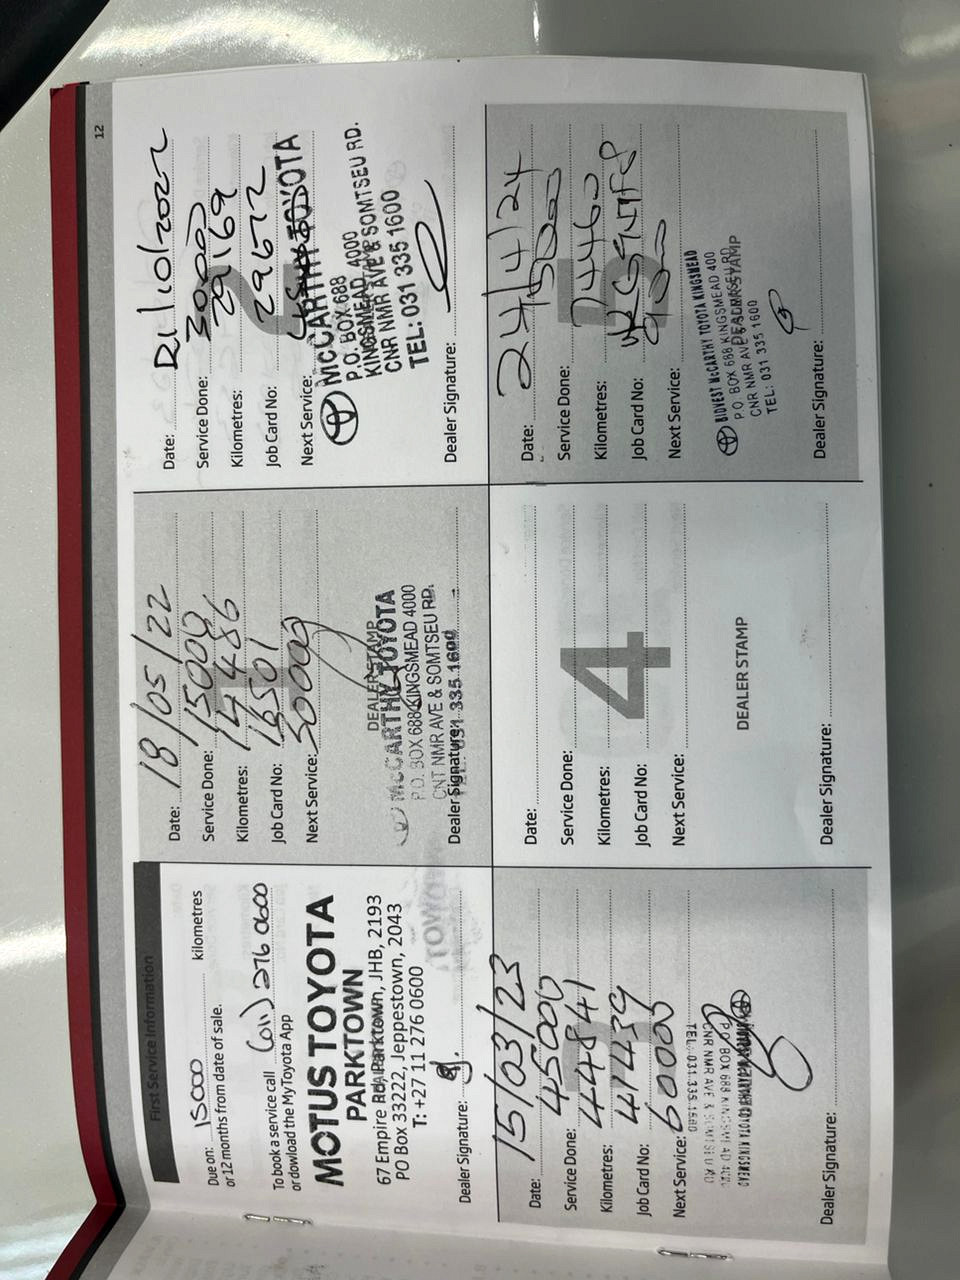 12
First Service Information
Due on: 15000 kilometres
or 12 months from date of sale.
To book a service call (011) 276 0600
or dowload the MyToyota App
MOTUS TOYOTA
PARKTOWN
67 Empire Rd, Parktown, JHB, 2193
PO Box 33222, Jeppestown, 2043
T: +27 11 276 0600
Dealer Signature:
Date: 18/05/22
Service Done: 15000
Kilometres: 14486
Job Card No: 16501
Next Service: 30000
DEALER STAMP
McCARTHY TOYOTA
P.O. BOX 688 KINGSMEAD 4000
CNT NMR AVE & SOMTSEU RD.
TEL: 031 335 1600
Dealer Signature:
Date: 21/10/2022
Service Done: 30000
Kilometres: 29169
Job Card No: 29672
Next Service:
2
McCARTHY TOYOTA
P.O. BOX 688
KINGSMEAD 4000
CNR NMR AVE & SOMTSEU RD.
TEL: 031 335 1600
Dealer Signature:
Date: 15/03/23
Service Done: 45000
Kilometres: 44841
Job Card No: 41439
Next Service: 60000
TOYOTA KINGSMEAD
P.O. BOX 688 KINGSMEAD 4000
CNR NMR AVE & SOMTSEU RD
TEL: 031 335 1600
Dealer Signature:
Date:
Service Done:
Kilometres:
Job Card No:
Next Service:
4
DEALER STAMP
Dealer Signature:
Date: 24/4/24
Service Done:
Kilometres: 74460
Job Card No:
Next Service:
5
DEALER STAMP
BIDVEST McCARTHY TOYOTA KINGSMEAD
P.O. BOX 688 KINGSMEAD 400
CNR NMR AVE & SOMTSEU RD
TEL: 031 335 1600
Dealer Signature: